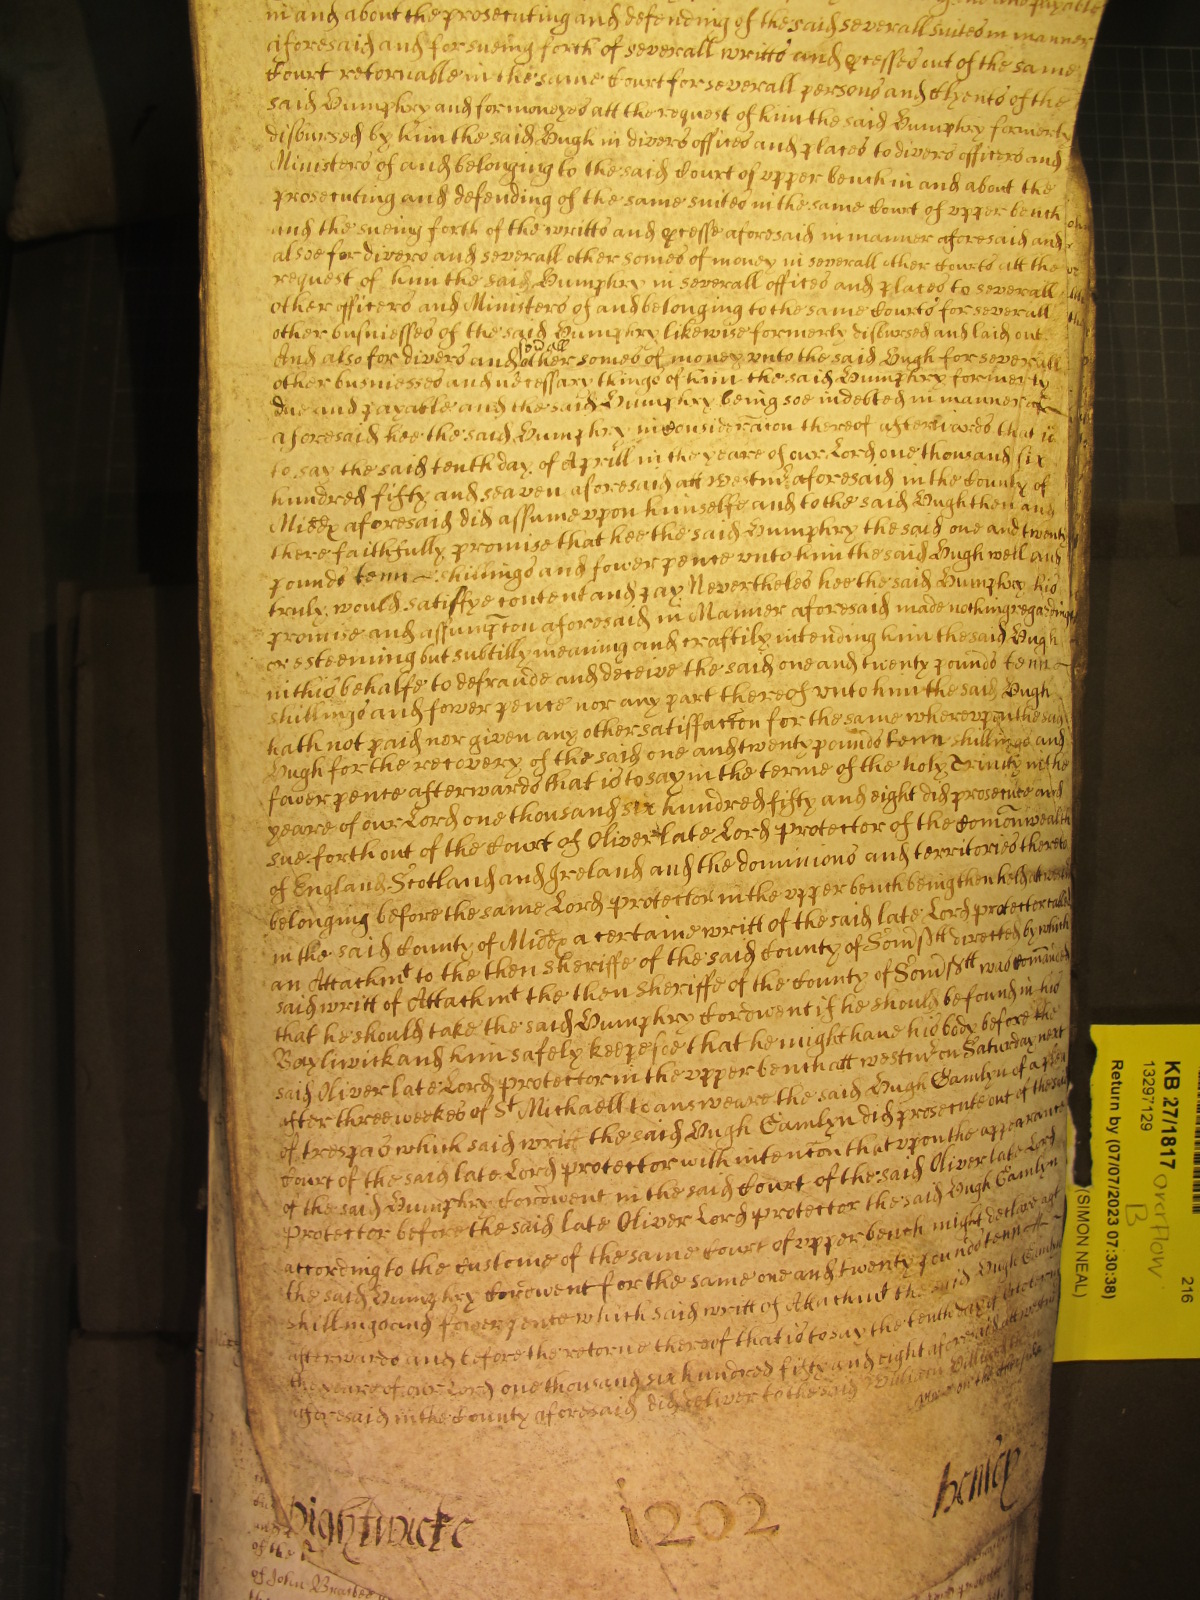 in and about the prosecuting and defending of the said severall suites in manner
aforesaid and for sueing forth of severall writts and p̱cesses out of the same
Court retornable in the same Court for severall persons and Clyents of the
said Humphry and for moneyes att the request of him the said Humphry formerly
disbursed by him the said Hugh in divers offices and places to divers officers and
Ministers of and belonging to the said Court of upper bench in and about the
prosecuting and defending of the same suites in the same Court of upper bench
and the sueing forth of the writts and p̱cesse aforesaid in manner aforesaid and
alsoe for divers and severall other somes of money in severall other Courts att the
request of him the said Humphry in severall offices and places to severall
other officers and Ministers of and belonging to the same Courts for severall
other busniesses of the said Humphry likewise formerly disbursed and laid out
And also for divers and other somes of money unto the said Hugh for severall
other busniesses and necessary things of him the said Humphry formerly
due and payable and the said Humphry being soe indebted in manner as
aforesaid hee the said Humphry in consideracion thereof afterwards that is
to say the said tenth day of Aprill in the yeare of our Lord one thousand six
hundred fifty and seaven aforesaid att Westmr aforesaid in the County of
Middx aforesaid did assume upon himselfe and to the said Hugh then and
there faithfully promise that hee the said Humphry the said one and twenty
pounds tenn shillings and fower pence unto him the said Hugh well and
truly would satisfye content and pay Nevertheles hee the said Humphry his
promise and assumpcon aforesaid in Manner aforesaid made nothing regarding
or esteeming but subtilly meaning and craftily intending him the said Hugh
in this behalfe to defraude and deceive the said one and twenty pounds tenn
shillings and fower pence nor any part thereof unto him the said Hugh
hath not paid nor given any other satisfaccon for the same whereupon the said
Hugh for the recovery of the said one and twenty pounds tenn shillings and
fower pence afterwards that is to say in the terme of the holy Trinity in the
yeare of our Lord one thousand six hundred fifty and eight did prosecute and
sue forth out of the Court of Oliver late Lord protector of the Comonwealth
of England Scotland and Ireland and the dominions and territories thereto
belonging before the same Lord protector in the upper bench being then held att Westmr
in the said County of Middx a certaine writt of the said late Lord protector called
an Attachmt to the then Sheriffe of the said County of Somsett directed by which
said writt of Attachmt the then Sheriffe of the County of Somsett was Comanded
that he should take the said Humphry Corowent if he should be found in his
Bayliwick and him safely keepe soe that he might have his body before the
said Oliver late Lord protector in the upper bench att westmr on Saturday next
after three weekes of St Michaell to answeare the said Hugh Gamlyn of a plea
of trespas which said writt the said Hugh Gamlyn did prosecute out of the said
Court of the said late Lord protector with intencon that upon the appearance
of the said Humphry Corowent in the said Court of the said Oliver late Lord
Protector before the said late Oliver Lord protector the said Hugh Gamlyn
according to the custome of the same Court of upper bench might declare agt
the said Humphry Corowent for the same one and twenty pounds tenn
shillings and fower pence which said writt of Attachmt the said Hugh Gamlyn
afterwards and before the retorne thereof that is to say the tenth day of
the yeare of our Lord one thousand six hundred fifty and eight aforesaid att westmr
aforesaid in the County aforesaid did deliver to the said William
hightwicke
1202
henley
of John
KB 27/1817 overflow
B
13297129
216
Return by (07/07/2023 07:30:38)
(SIMON NEAL)